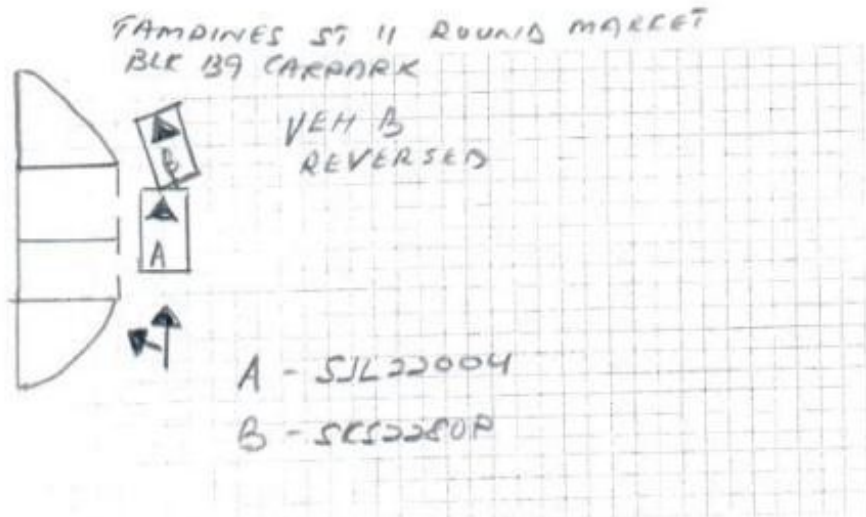 TAMPINES ST 11 ROUND MARKET
BLK 139 CARPARK
VEH B
REVERSED
B
A
A - SJL2200U
B - SKS2280P